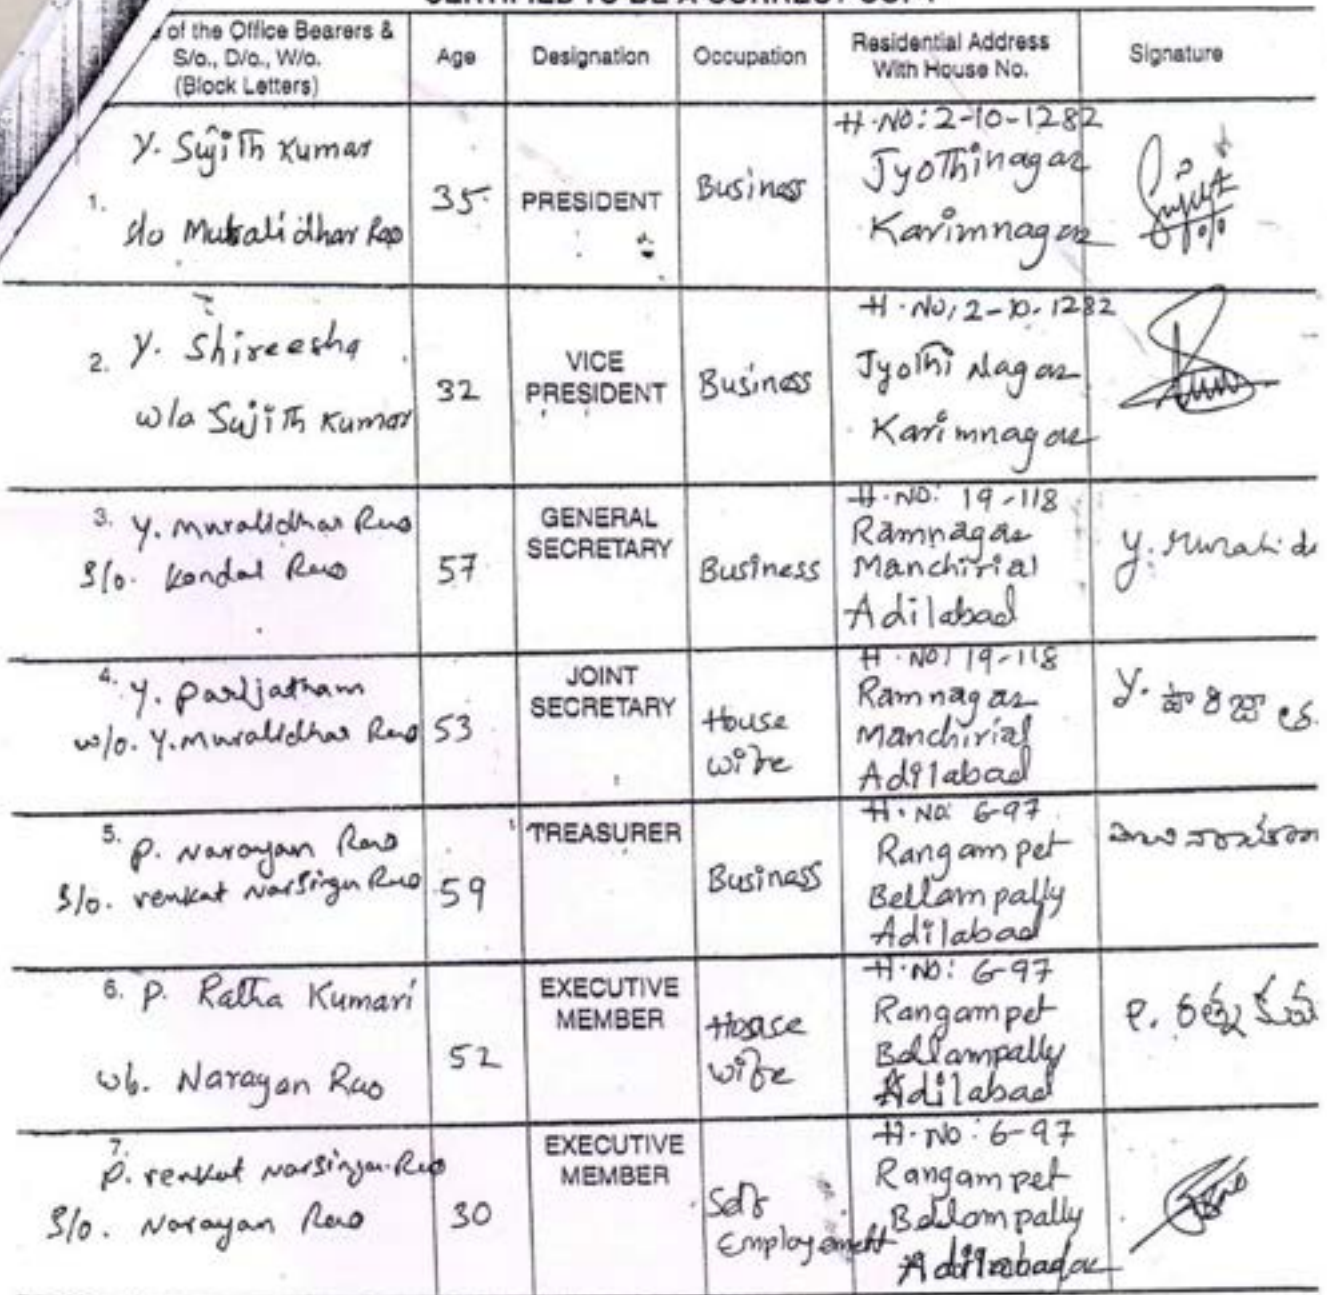 of the Office Bearers & S/o., D/o., W/o. (Block Letters) Age Designation Occupation Residential Address With House No. Signature
1. Y. Sujith Kumar
S/o Muralidhar Rao
35
PRESIDENT
Business
H.NO: 2-10-1282
Jyothinagar
Karimnagar
2. Y. Shireesha
w/o Sujith Kumar
32
VICE
PRESIDENT
Business
H.NO: 2-10-1282
Jyothi Nagar
Karimnagar
3. Y. Muralidhar Rao
S/o. Kondal Rao
57
GENERAL
SECRETARY
Business
H.NO: 19-118
Ramnagar
Manchirial
Adilabad
Y. Murali d
4. Y. Parijatham
w/o. Y. Muralidhar Rao
53
JOINT
SECRETARY
House
wife
H.NO: 19-118
Ramnagar
Manchirial
Adilabad
Y. పారిజాత
5. P. Narayan Rao
S/o. Venkat Narsinga Rao
59
TREASURER
Business
H.NO: 6-97
Rangampet
Bellampally
Adilabad
6. P. Ratha Kumari
w/o. Narayan Rao
52
EXECUTIVE
MEMBER
House
wife
H.NO: 6-97
Rangampet
Bellampally
Adilabad
P. రత్న కుమ
7. P. Venkat Narsinga Rao
S/o. Narayan Rao
30
EXECUTIVE
MEMBER
Self
Employement
H.NO: 6-97
Rangampet
Bellampally